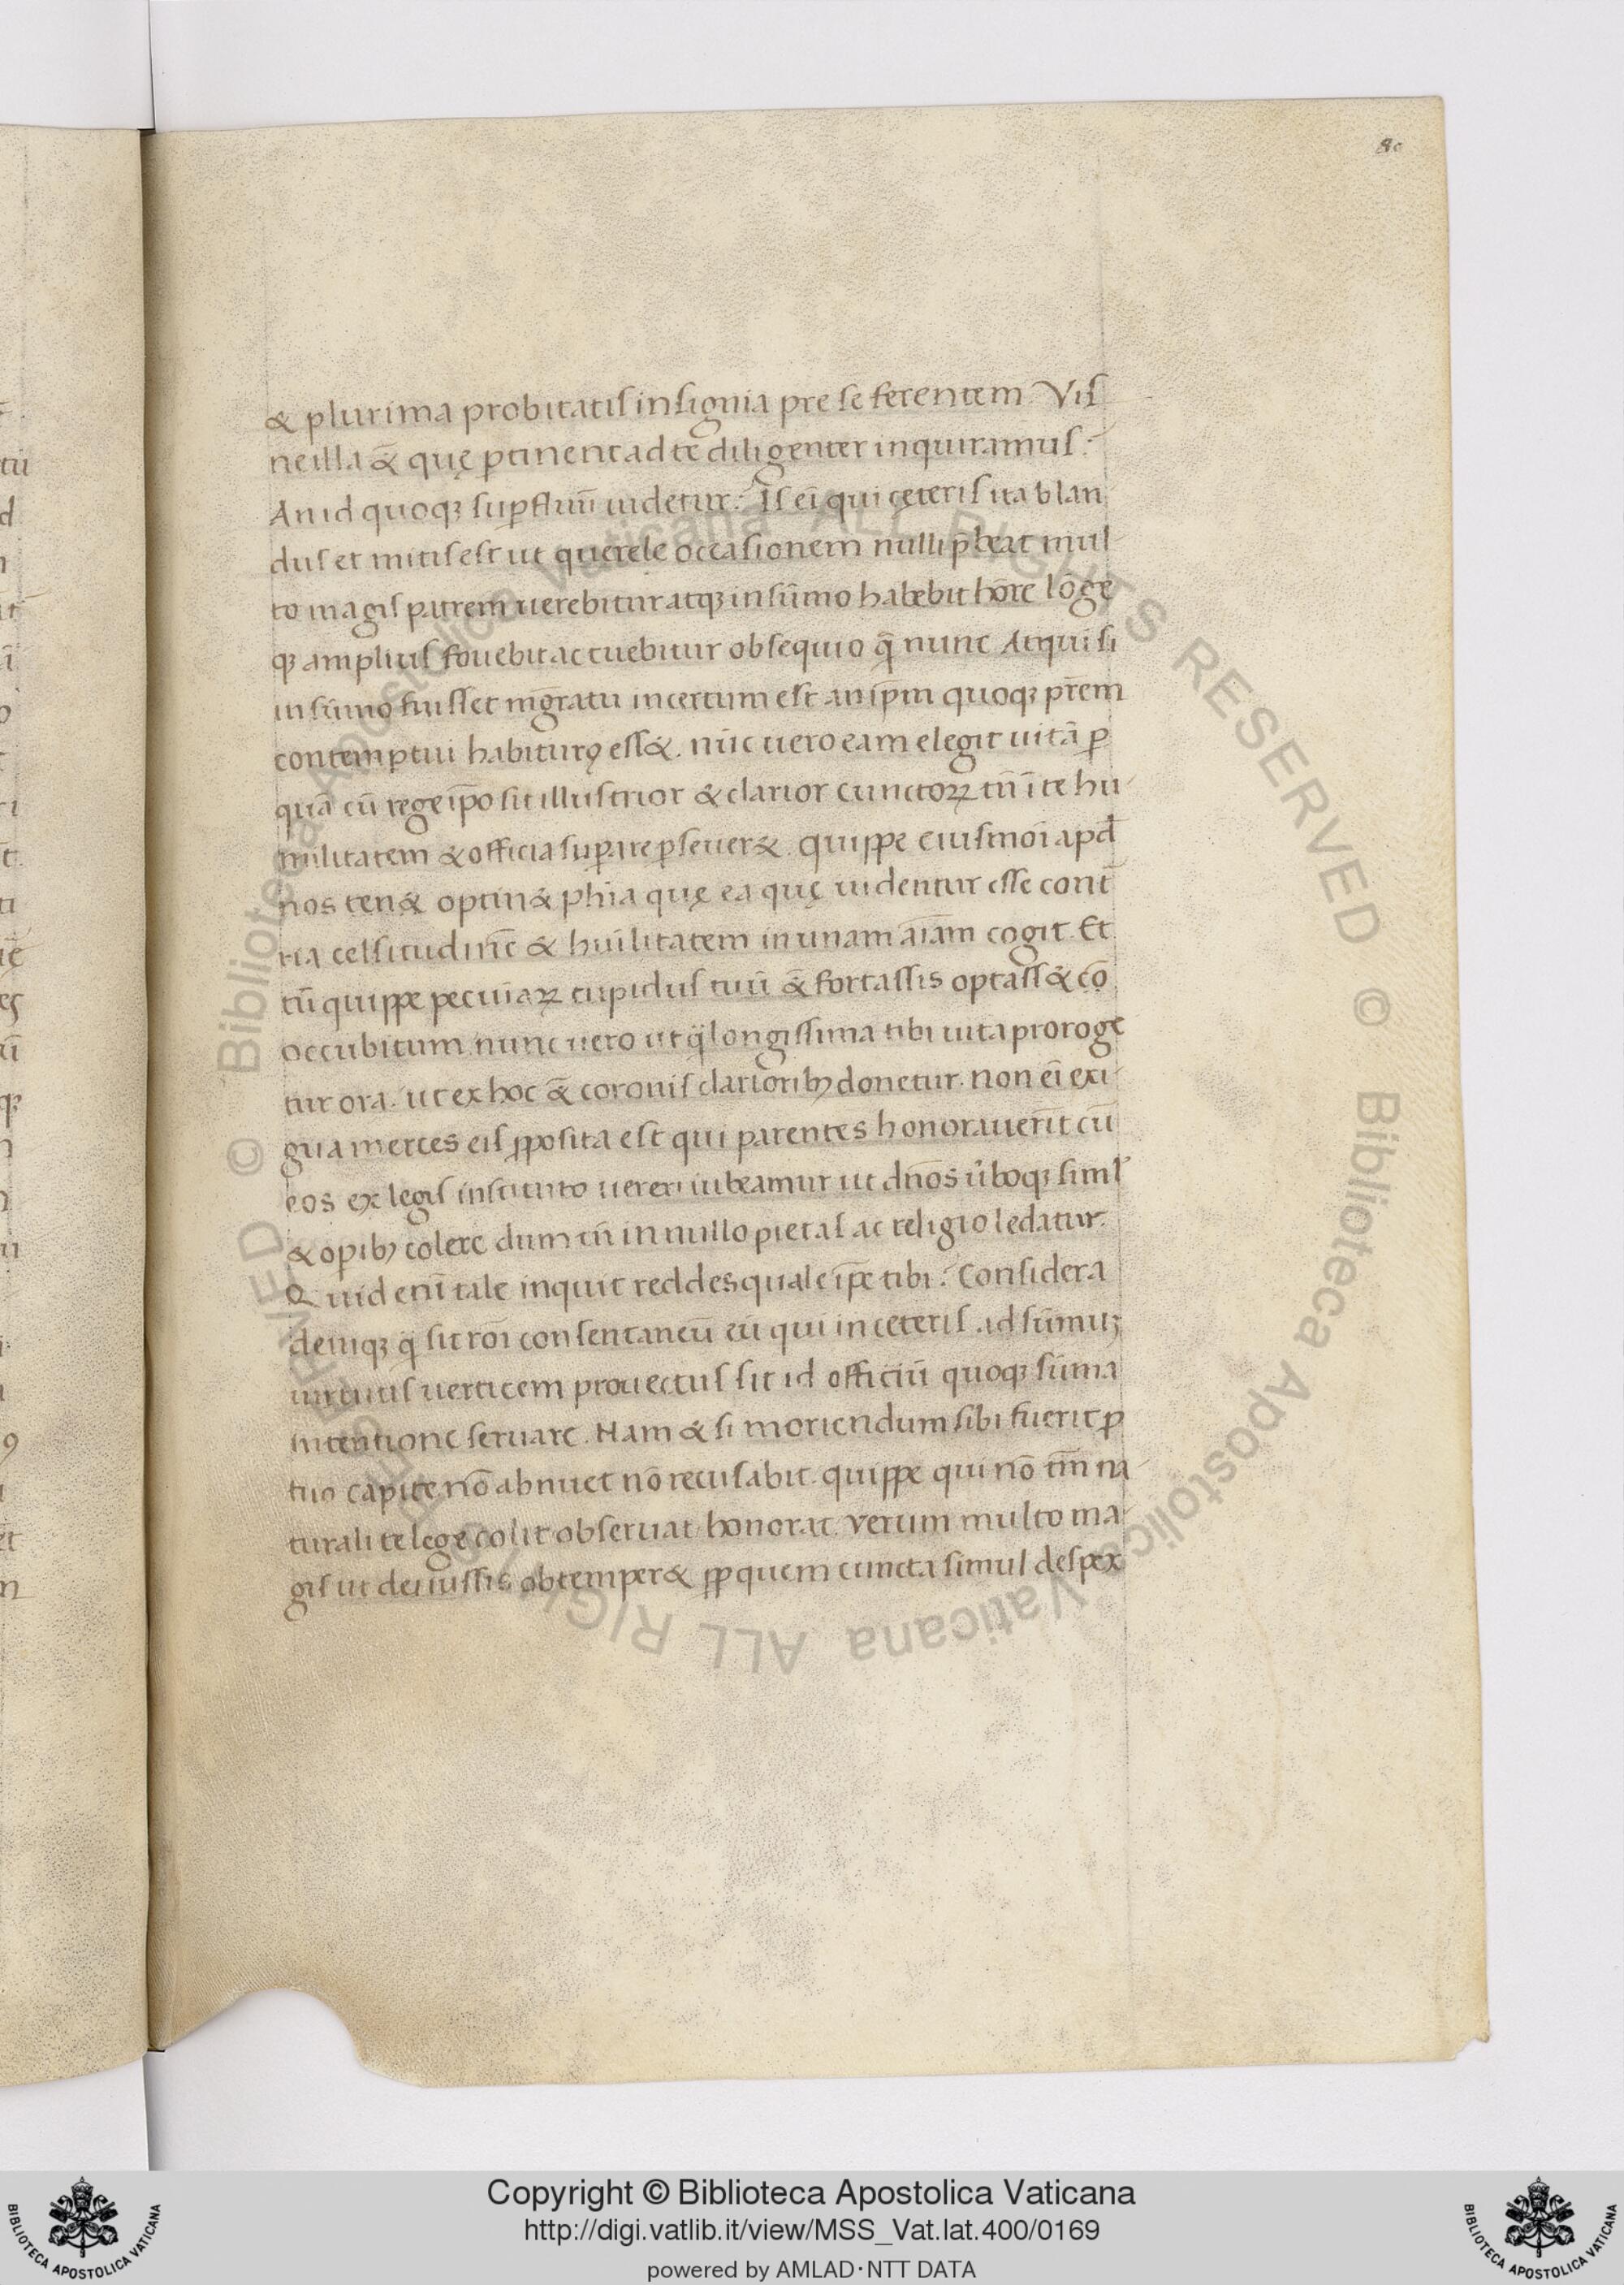 80
& plurima probitatis insignia pre se ferentem Vis
ne illa &̄ quę ꝑtinent ad te diligenter inquiramus.
An id quoqꝫ suꝑfluū uidetur. Is ei̅ qui cęteris ita blan
dus et mitis est ut querele occasionem nulli p̄beat mul
to magis patrem uerebitur atqꝫ in su̅mo habebit ho̅re lo̅ge
qꝫ amplius fouebit ac tuebitur obsequio q̄ nunc Atqui si
in su̅mo fuisset mḡratu incertum est an ip̅m quoqꝫ pr̅em
contemptui habiturꝯ ess&. nu̅c uero eam elegit uita̅ ꝑ
qua̅ cu̅ rege ip̅o sit illustrior & clarior cunctoꝝ tn̅ i̅ te hu
militatem & officia suꝑare ꝑseuer&. quippe eiusmoi̅ apd̅
nos ten& optin& phi̅a quę ea quę uidentur esse cont̅
ria celsitudine̅ & hu̅ilitatem in unam ai̅am cogit. Et
tu̅ quippe pecuniaꝝ cupidus tuu̅ &̄ fortassis optass& co̅
occubitum nunc uero ut q̄ longissima tibi uita proroge
tur ora. ut ex hoc &̄ coronis clarioribꝫ donetur. non ei̅ exi
gua merces eis ꝓposita est qui parentes honorauerīt cu̅
eos ex legis instituto uereri iubeamur ut dn̅os u̅boqꝫ siml̅
& oꝑibꝫ colere dum tn̅ in nullo pietas ac religio ledatur.
Quid eni̅ tale inquit reddes quale ip̅e tibi. Considera
deniqꝫ q̄ sit ro̅i consentaneu̅ eu̅ qui in ceteris ad su̅muꝫ
uirtutis uerticem prouectus sit id officiu̅ quoqꝫ su̅ma
intentione seruare. Nam & si moriendum sibi fuerit ꝑ
tuo capite no̅ abnuet no̅ recusabit. quippe qui no̅ tm̅ na
turali te lege colit obseruat honorat. verum multo ma
gis ut dei iussis obtemper& ꝓp quem cuncta simul despex
Copyright © Biblioteca Apostolica Vaticana
http://digi.vatlib.it/view/MSS_Vat.lat.400/0169
powered by AMLAD·NTT DATA